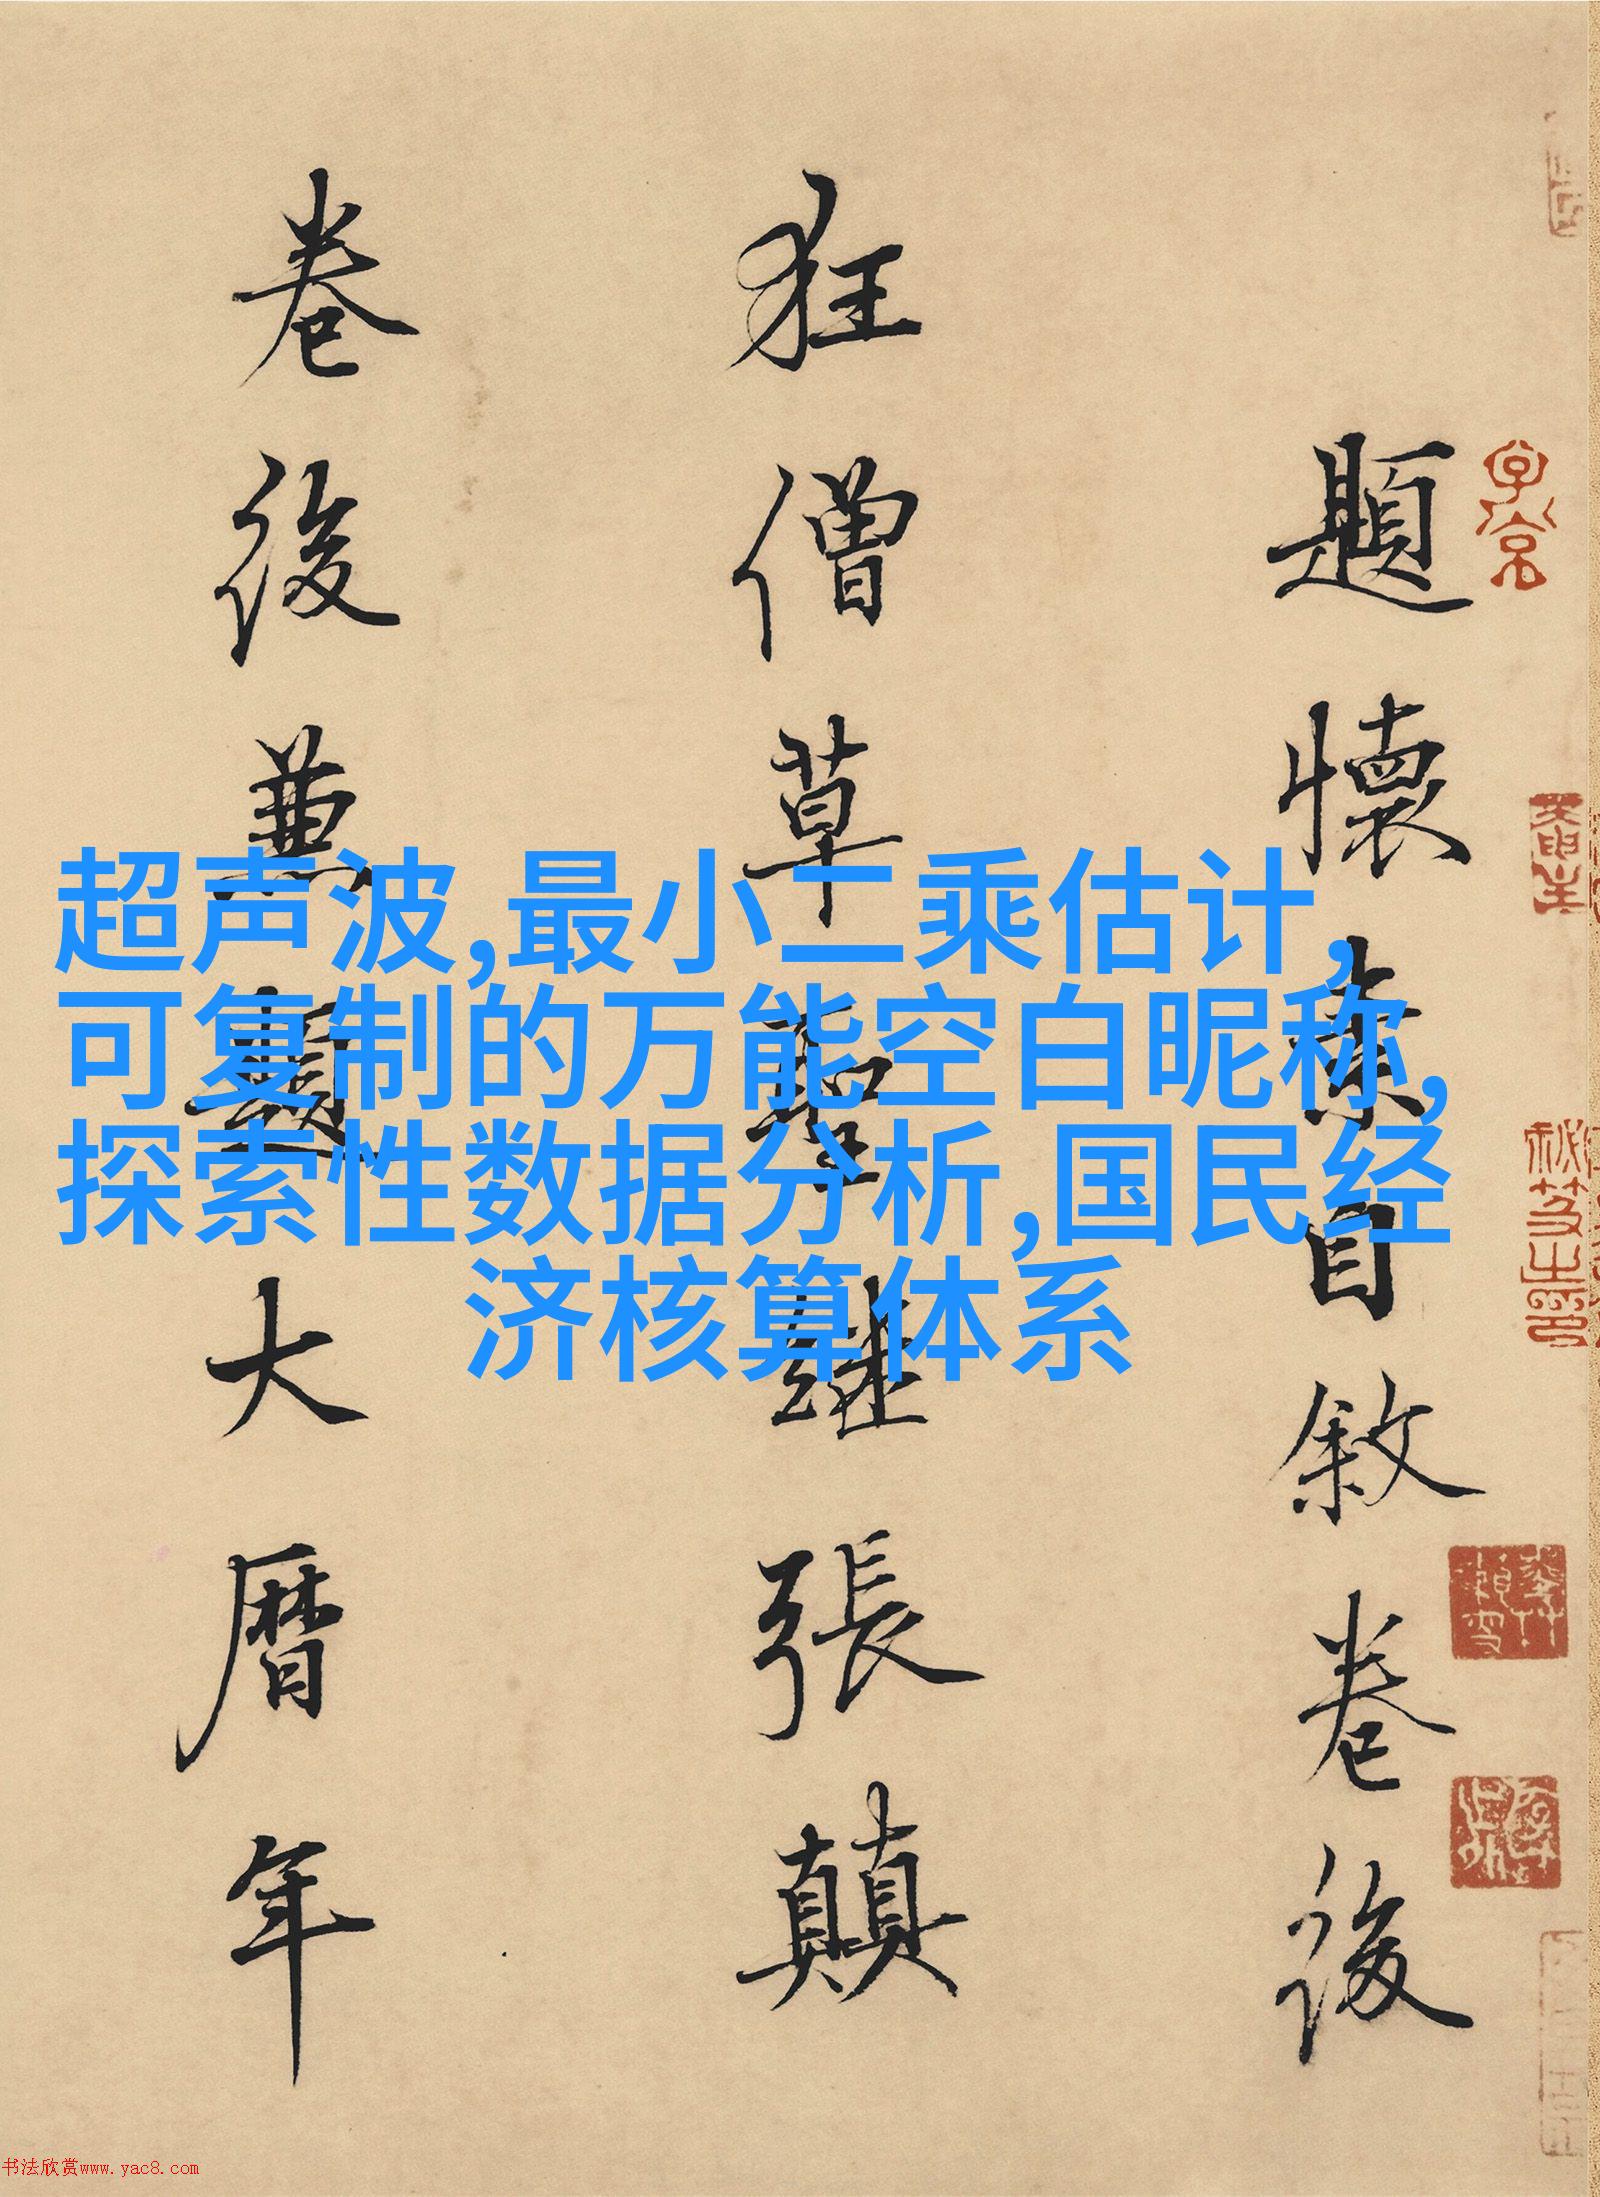 題懷素自敘卷後
狂僧草聖继張顛
卷後兼題大曆年
超声波,最小二乘估计,
可复制的万能空白昵称,
探索性数据分析,国民经
济核算体系
书法欣赏www.yac8.com